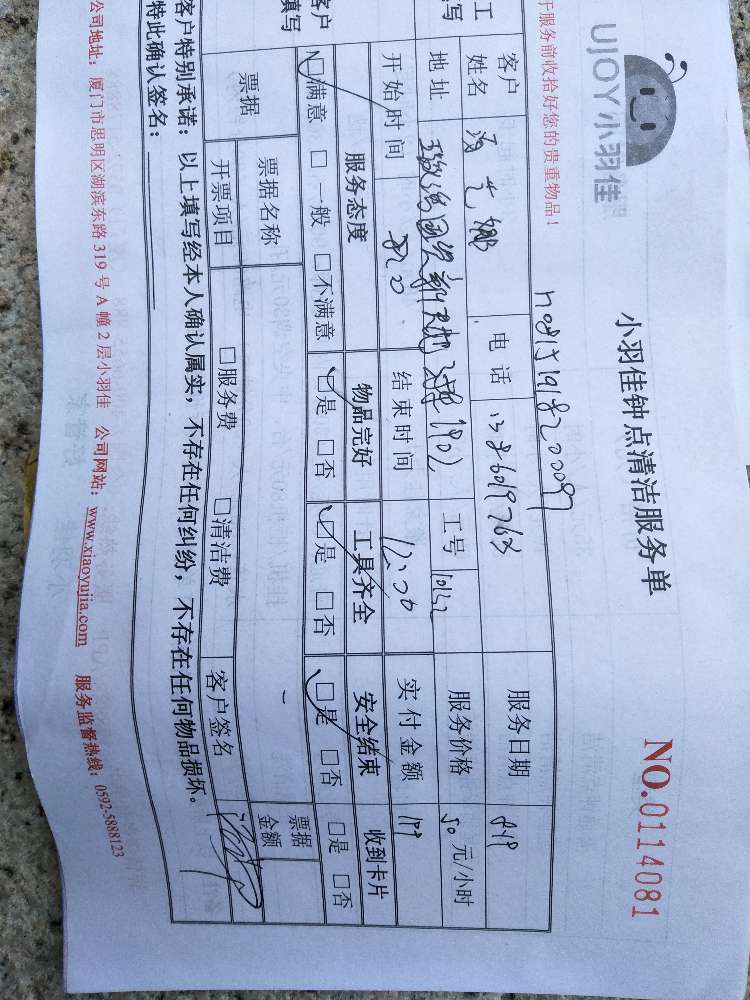 UJOY小羽佳
小羽佳钟点清洁服务单
NO.0114081
于服务前收拾好您的贵重物品！
客户
姓名
电话
服务日期
地址
1902
工号
服务价格
50 元/小时
开始时间
结束时间
12:00
实付金额
工
写
客户
填写
服务态度
物品完好
工具齐全
安全结束
收到卡片
□满意 □一般 □不满意
□是 □否
□是 □否
□是 □否
□是 □否
票据
票据名称
票据
金额
开票项目
□服务费 □清洁费
客户签名
客户特别承诺：以上填写经本人确认属实，不存在任何纠纷，不存在任何物品损坏。
特此确认签名：
公司地址：厦门市思明区湖滨东路 319 号 A 幢 2 层小羽佳 公司网站：www.xiaoyujia.com 服务监督热线：0592-5888123